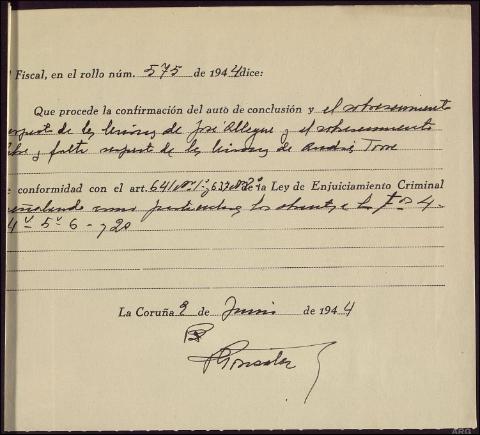 Fiscal, en el rollo núm. 575 de 1944 dice:
Que procede la confirmación del auto de conclusión y el sobreseimiento
respecto de las lesiones de José Allegue y el sobreseimiento
libre y falta respecto de las lesiones de Andrés Torre
conformidad con el art. 641 nº 1º y 637 nº 2º de la Ley de Enjuiciamiento Criminal
señalando como particulares los obrantes a los fos 4 -
4 vº 5 º 6 - y 20
La Coruña 2 de Junio de 1944
González
ARG